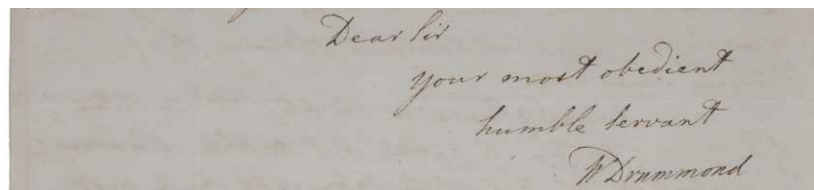 Dear Sir
your most obedient
humble servant
W Drummond